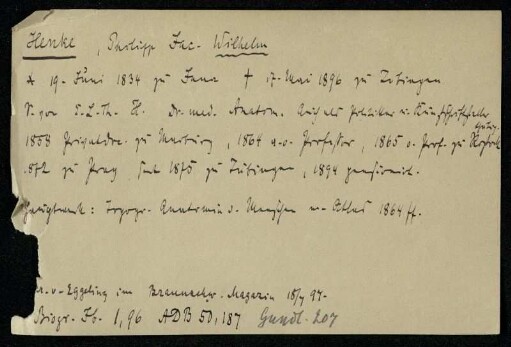 Henke, Philipp Jac. Wilhelm
* 19. Juni 1834 zu Jena † 17. Mai 1896 zu Tübingen
S. von E. L. Th. H. Dr. med. Anatom. Auch als Politiker u. Kunstschriftsteller
1858 Privatdoc. zu Marburg, 1864 a.o. Professor, 1865 o. Prof. zu Rostock
1872 zu Prag, seit 1875 zu Tübingen, 1894 pensionirt.
Hauptwerk: Topogr. Anatomie d. Menschen m. Atlas 1864 ff.
v. Eggeling im Braunschw. Magazin 18/7 97.
Biogr. Jb. 1,96 ADB 50,187 Gundl. 207